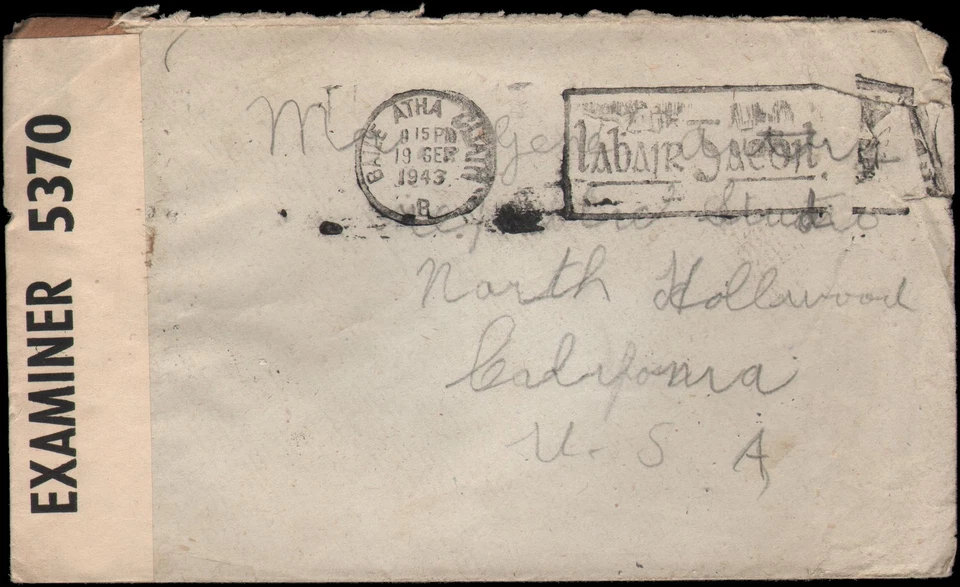 EXAMINER 5370
BAILE ATHA CLIATH
15 PM
19
1943
B
labair
Gene Autry
Studio
North Hollwood
California
U. S A